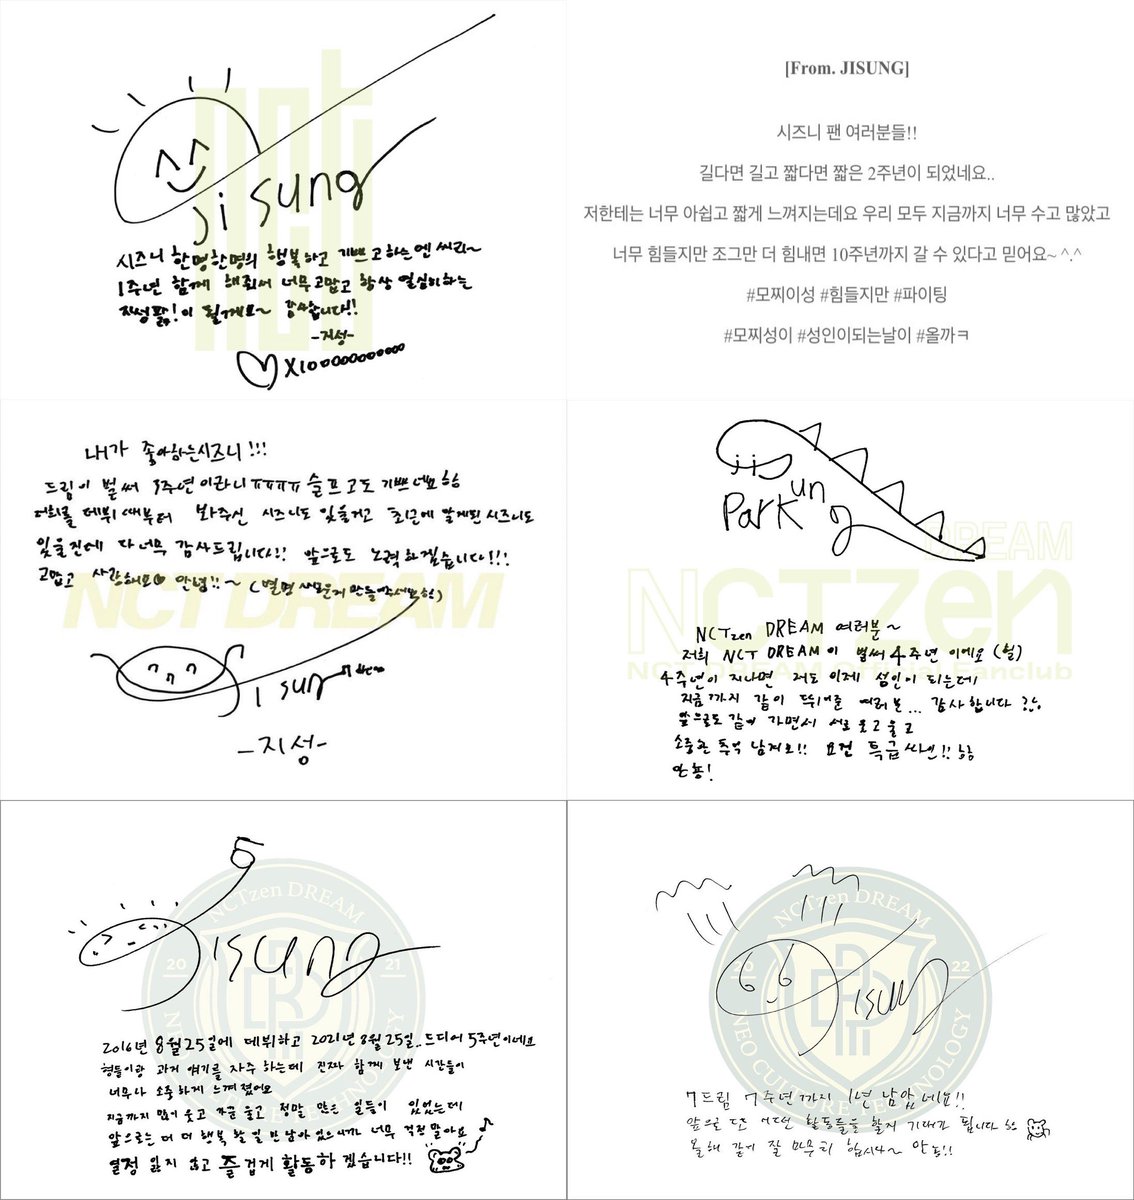 jisung
시즈니 한명한명의 행복하고 기쁘고하는 엔씨라~
1주년 함께 해줘서 너무고맙고 항상 열심히하는
지성팖!이 될게요~ 감사합니다!!
-지성-
X10000000000000
[From. JISUNG]
시즈니 팬 여러분들!!
길다면 길고 짧다면 짧은 2주년이 되었네요..
저한테는 너무 아쉽고 짧게 느껴지는데요 우리 모두 지금까지 너무 수고 많았고
너무 힘들지만 조그만 더 힘내면 10주년까지 갈 수 있다고 믿어요~ ^.^
#모찌이성 #힘들지만 #파이팅
#모찌성이 #성인이되는날이 #올까ㅋ
내가 좋아하는시즈니!!!
드림이 벌써 3주년이라니ㅠㅠㅠㅠ슬프고도 기쁘네요
저희를 데뷔때부터 봐주신 시즈니도 있을거고 최근에 알게된 시즈니도
있을건데 다너무 감사드립니다!! 앞으로도 노력하겠습니다!!!
고맙고 사랑해요 안녕!!~
NCT DREAM
Jisung
-지성-
jisung
Park
DREAM
NCTzen
NCT DREAM Official Fanclub
NCTzen DREAM 여러분~
저희 NCT DREAM이 벌써 4주년이에요 (헐)
4주년이 지나면 저도 이제 성인이 되는데
지금까지 같이 뛰어준 여러분... 감사합니다
앞으로도 같이 가면서 서로 웃고울고
소중한 추억 남겨요!! 요건 특급싸인!!
안뇽!
5
Jisung
NCTzen DREAM
20 21
NEO CULTURE TECHNOLOGY
2016년 8월25일에 데뷔하고 2021년 8월25일..드디어 5주년이네요
형들이랑 과거 얘기를 자주 하는데 진짜 함께 보낸 시간들이
너무나 소중하게 느껴졌어요
지금까지 많이 웃고 가끔 울고 정말 많은 일들이 있었는데
앞으로는 더 더 행복할 일만 남아있으니까 너무 걱정말아요
열정 잃지 않고 즐겁게 활동하겠습니다!!
Jisung
NCTzen DREAM
20 22
NEO CULTURE TECHNOLOGY
7드림 7주년까지 1년 남았네요!!
앞으로도 어떤 활동들을 할지 기대가 됩니다
올해 같이 잘 마무리 합시다~ 안뇽!!